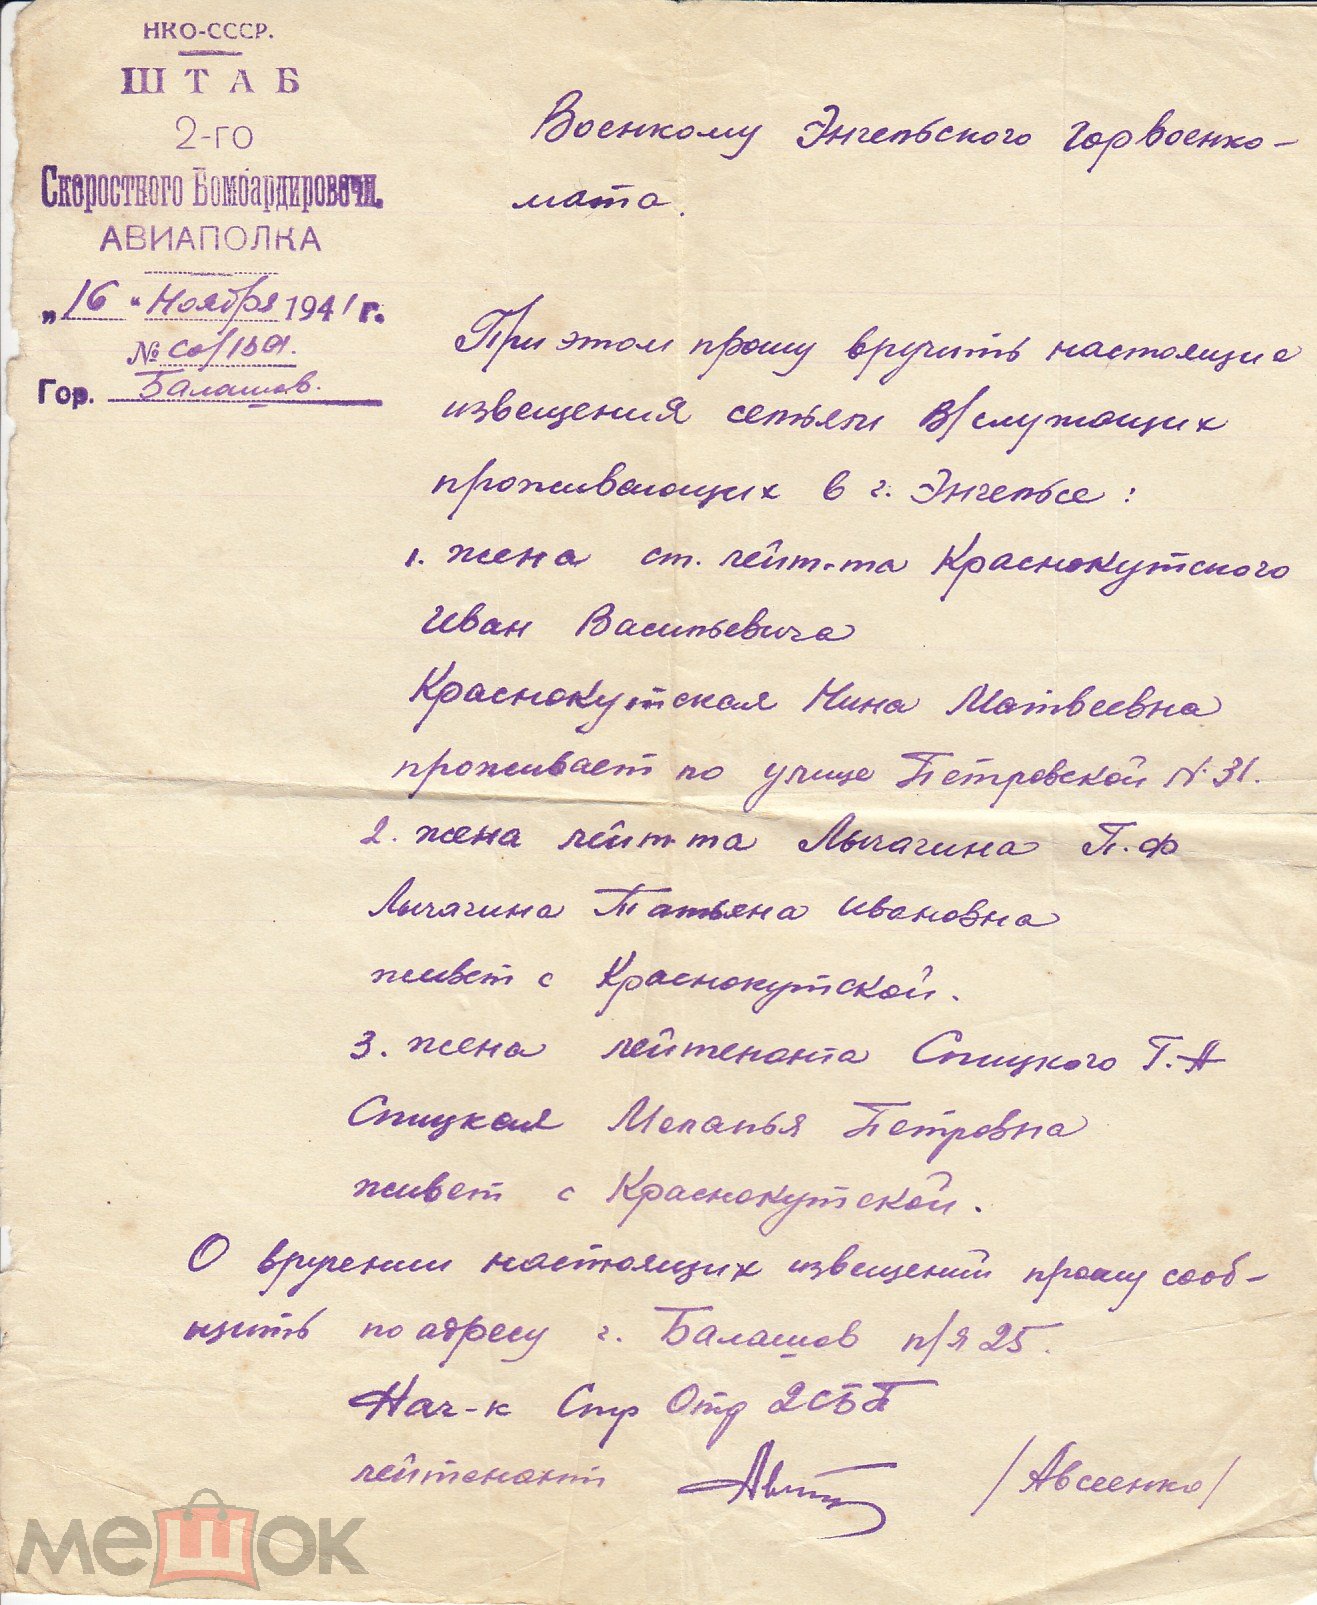 НКО-СССР.
ШТАБ
2-ГО
Скоростного Бомбардировочн.
АВИАПОЛКА
„16" Ноября 1941 г.
№ со/159.
Гор. Балашов.
Военкому Энгельского Горвоенко-
мата.
При этом прошу вручить настоящие
извещения семьям в/служащих
проживающих в г. Энгельсе:
1. жена ст. лейт-та Краснокутского
Иван Васильевича
Краснокутская Нина Матвеевна
проживает по улице Петровской N 31.
2. жена лейт-та Лычагина П.Ф
Лычагина Татьяна Ивановна
живет с Краснокутской.
3. жена лейтенанта Спицкого Г.А
Спицкая Меланья Петровна
живет с Краснокутской.
О вручении настоящих извещений прошу сооб-
щить по адресу г. Балашов п/я 25.
Нач-к Стр Отд 2СБП
лейтенант /Авсеенко/
мешок